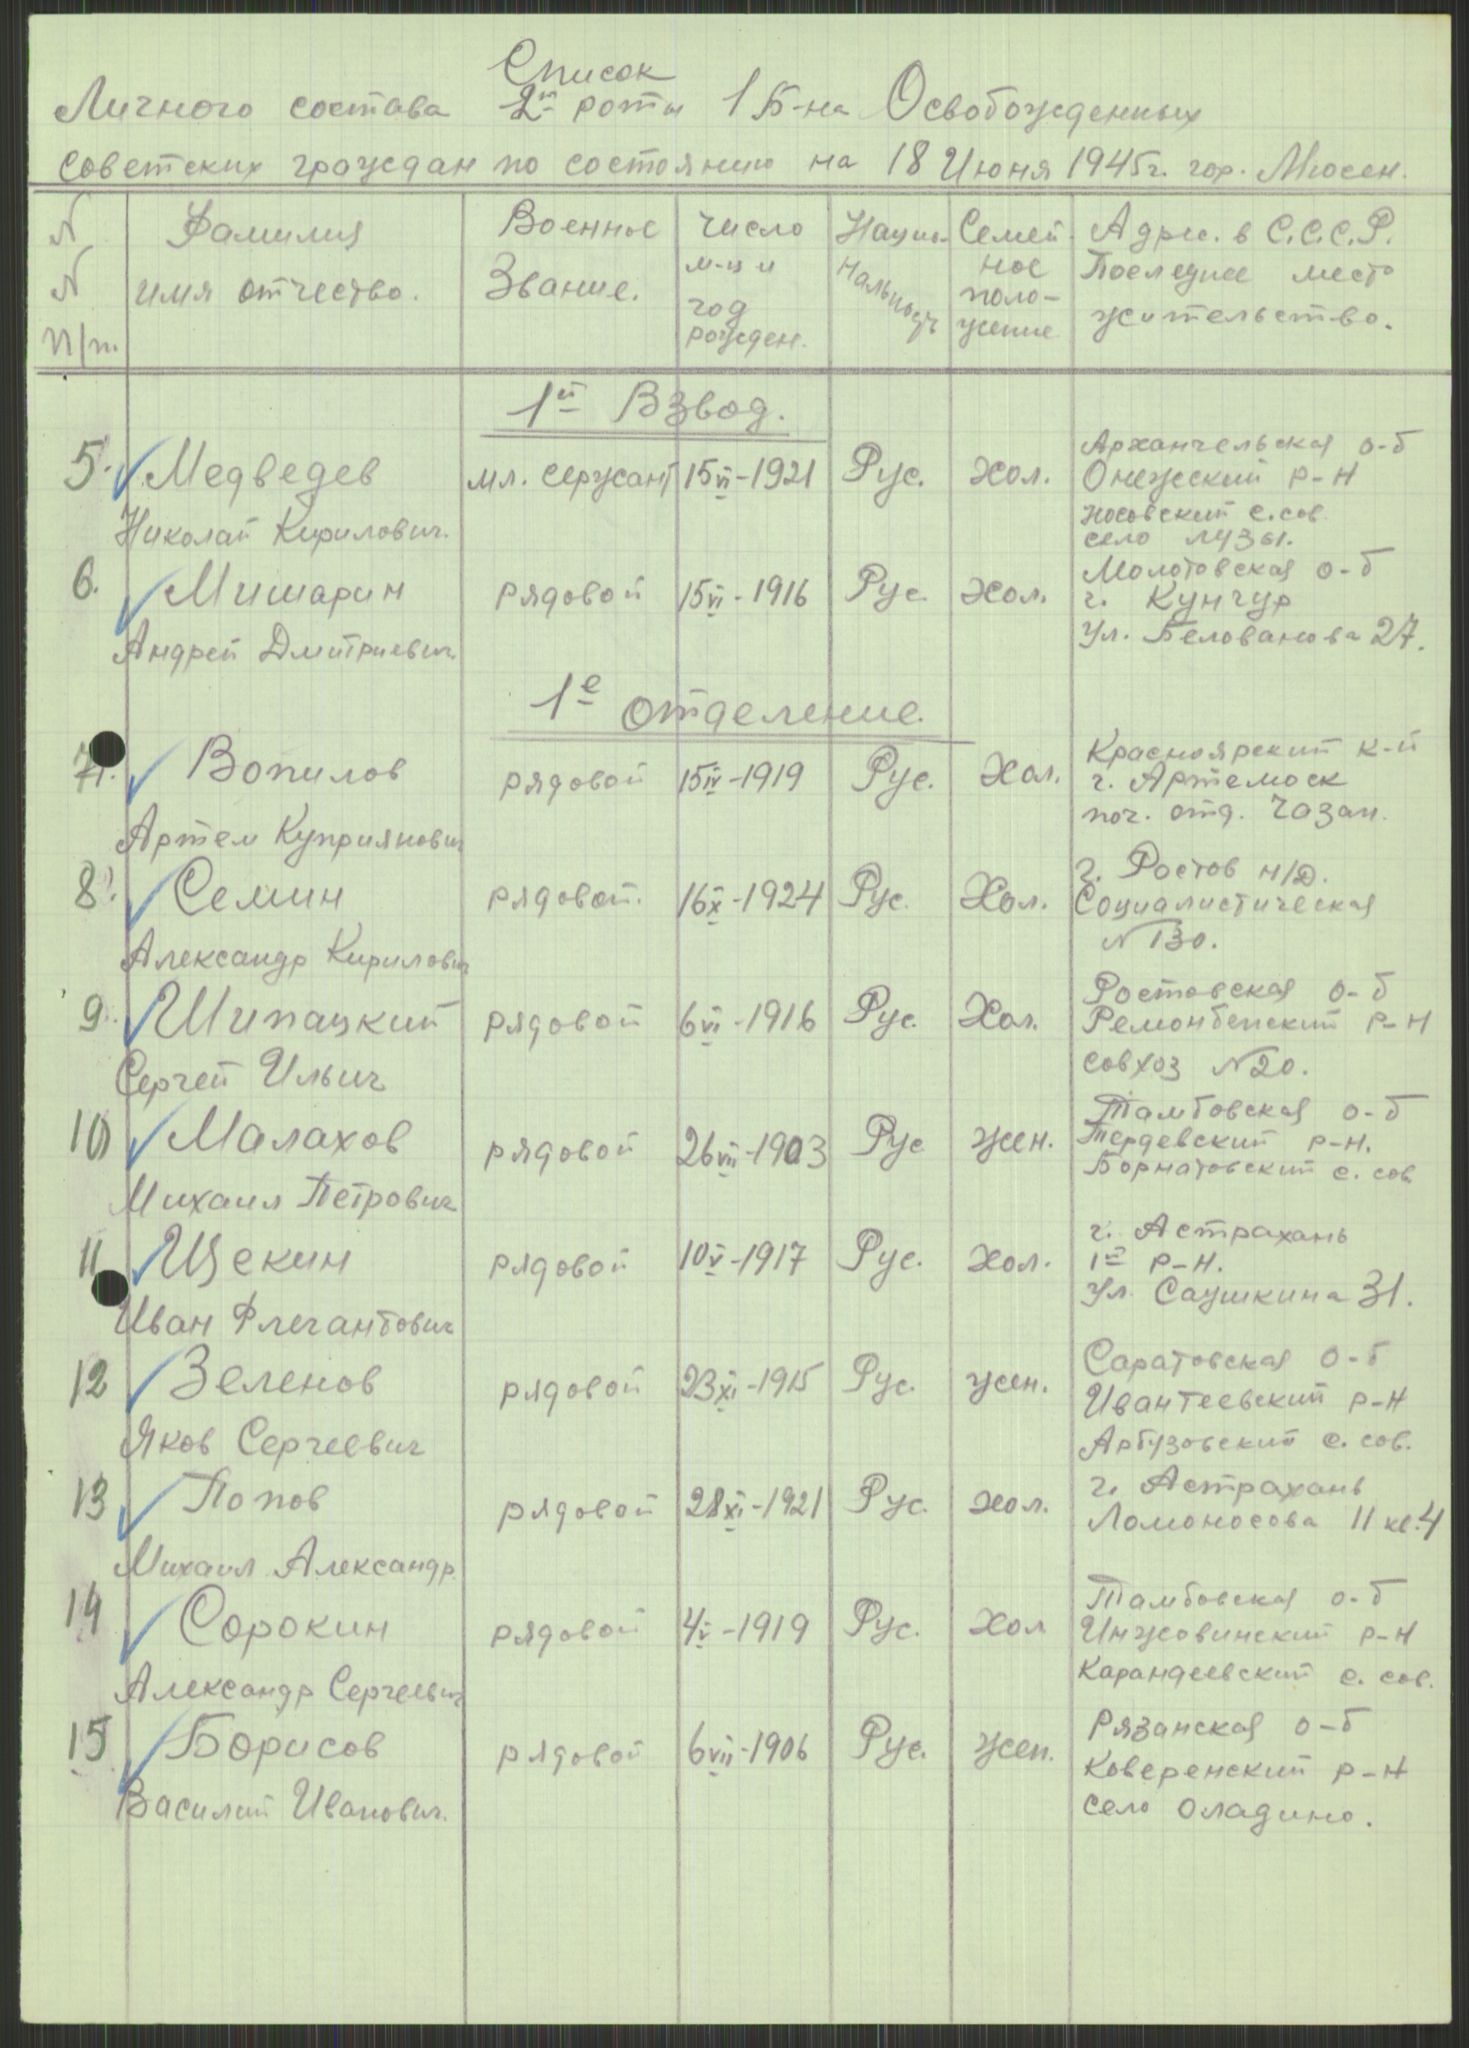 Список
Личного состава 2й роты 1 Б-на Освобожденных
советских граждан по состоянию на 18 Июня 1945г. гор. Мюсен.
N N п/п. Фамилия имя отчество. Военное Звание. число м-ц и год рожден. Нацио-нальность Семей-ное поло-жение Адрес. в С.С.С.Р. Последнее место жительство.
1й Взвод.
5. Медведев мл. сержант 15 VI-1921 Рус. хол. Архангельская о-б
Онежский р-н
Николай Кирилович. Носовский с.сов.
село Лузы.
6. Мишарин рядовой 15 VI-1916 Рус. хол. Молотовская о-б
г. Кунгур
Андрей Дмитриевич. ул. Белованова 27.
1е отделение.
7. Вопилов рядовой 15 IV-1919 Рус. Хол. Красноярский к-й
г. Артемовск
Артем Куприянович поч. отд. Чазан.
8. Семин рядовой. 16 X-1924 Рус. Хол. г. Ростов н/Д.
Социалистическая
Александр Кирилович N 130.
9. Шипацкий рядовой 6 VI-1916 Рус. Хол. Ростовская о-б
Ремонбенский р-н
Сергей Ильич совхоз N20.
10 Малахов рядовой 26 VII-1903 Рус жен. Тамбовская о-б
Тердевский р-н.
Михаил Петрович Борнатовский с. сов.
11 Щекин рядовой 10 V-1917 Рус. хол. г. Астрахань
1й р-н.
Иван Флегантович ул. Саушкина 31.
12 Зеленов рядовой 23 XI-1915 Рус. жен. Саратовская о-б
Ивантеевский р-н
Яков Сергеевич Арбузовский с. сов.
13 Попов рядовой 28 XI-1921 Рус. хол. г. Астрахань
Ломоносова 11 кв.4
Михаил Александр.
14 Сорокин рядовой 4 V-1919 Рус. хол Тамбовская о-б
Инжовинский р-н
Александр Сергеевич Карандеевский с. сов.
15 Борисов рядовой 6 VII-1906 Рус. жен. Рязанская о-б
Коверенский р-н
Василий Иванович. село Оладино.